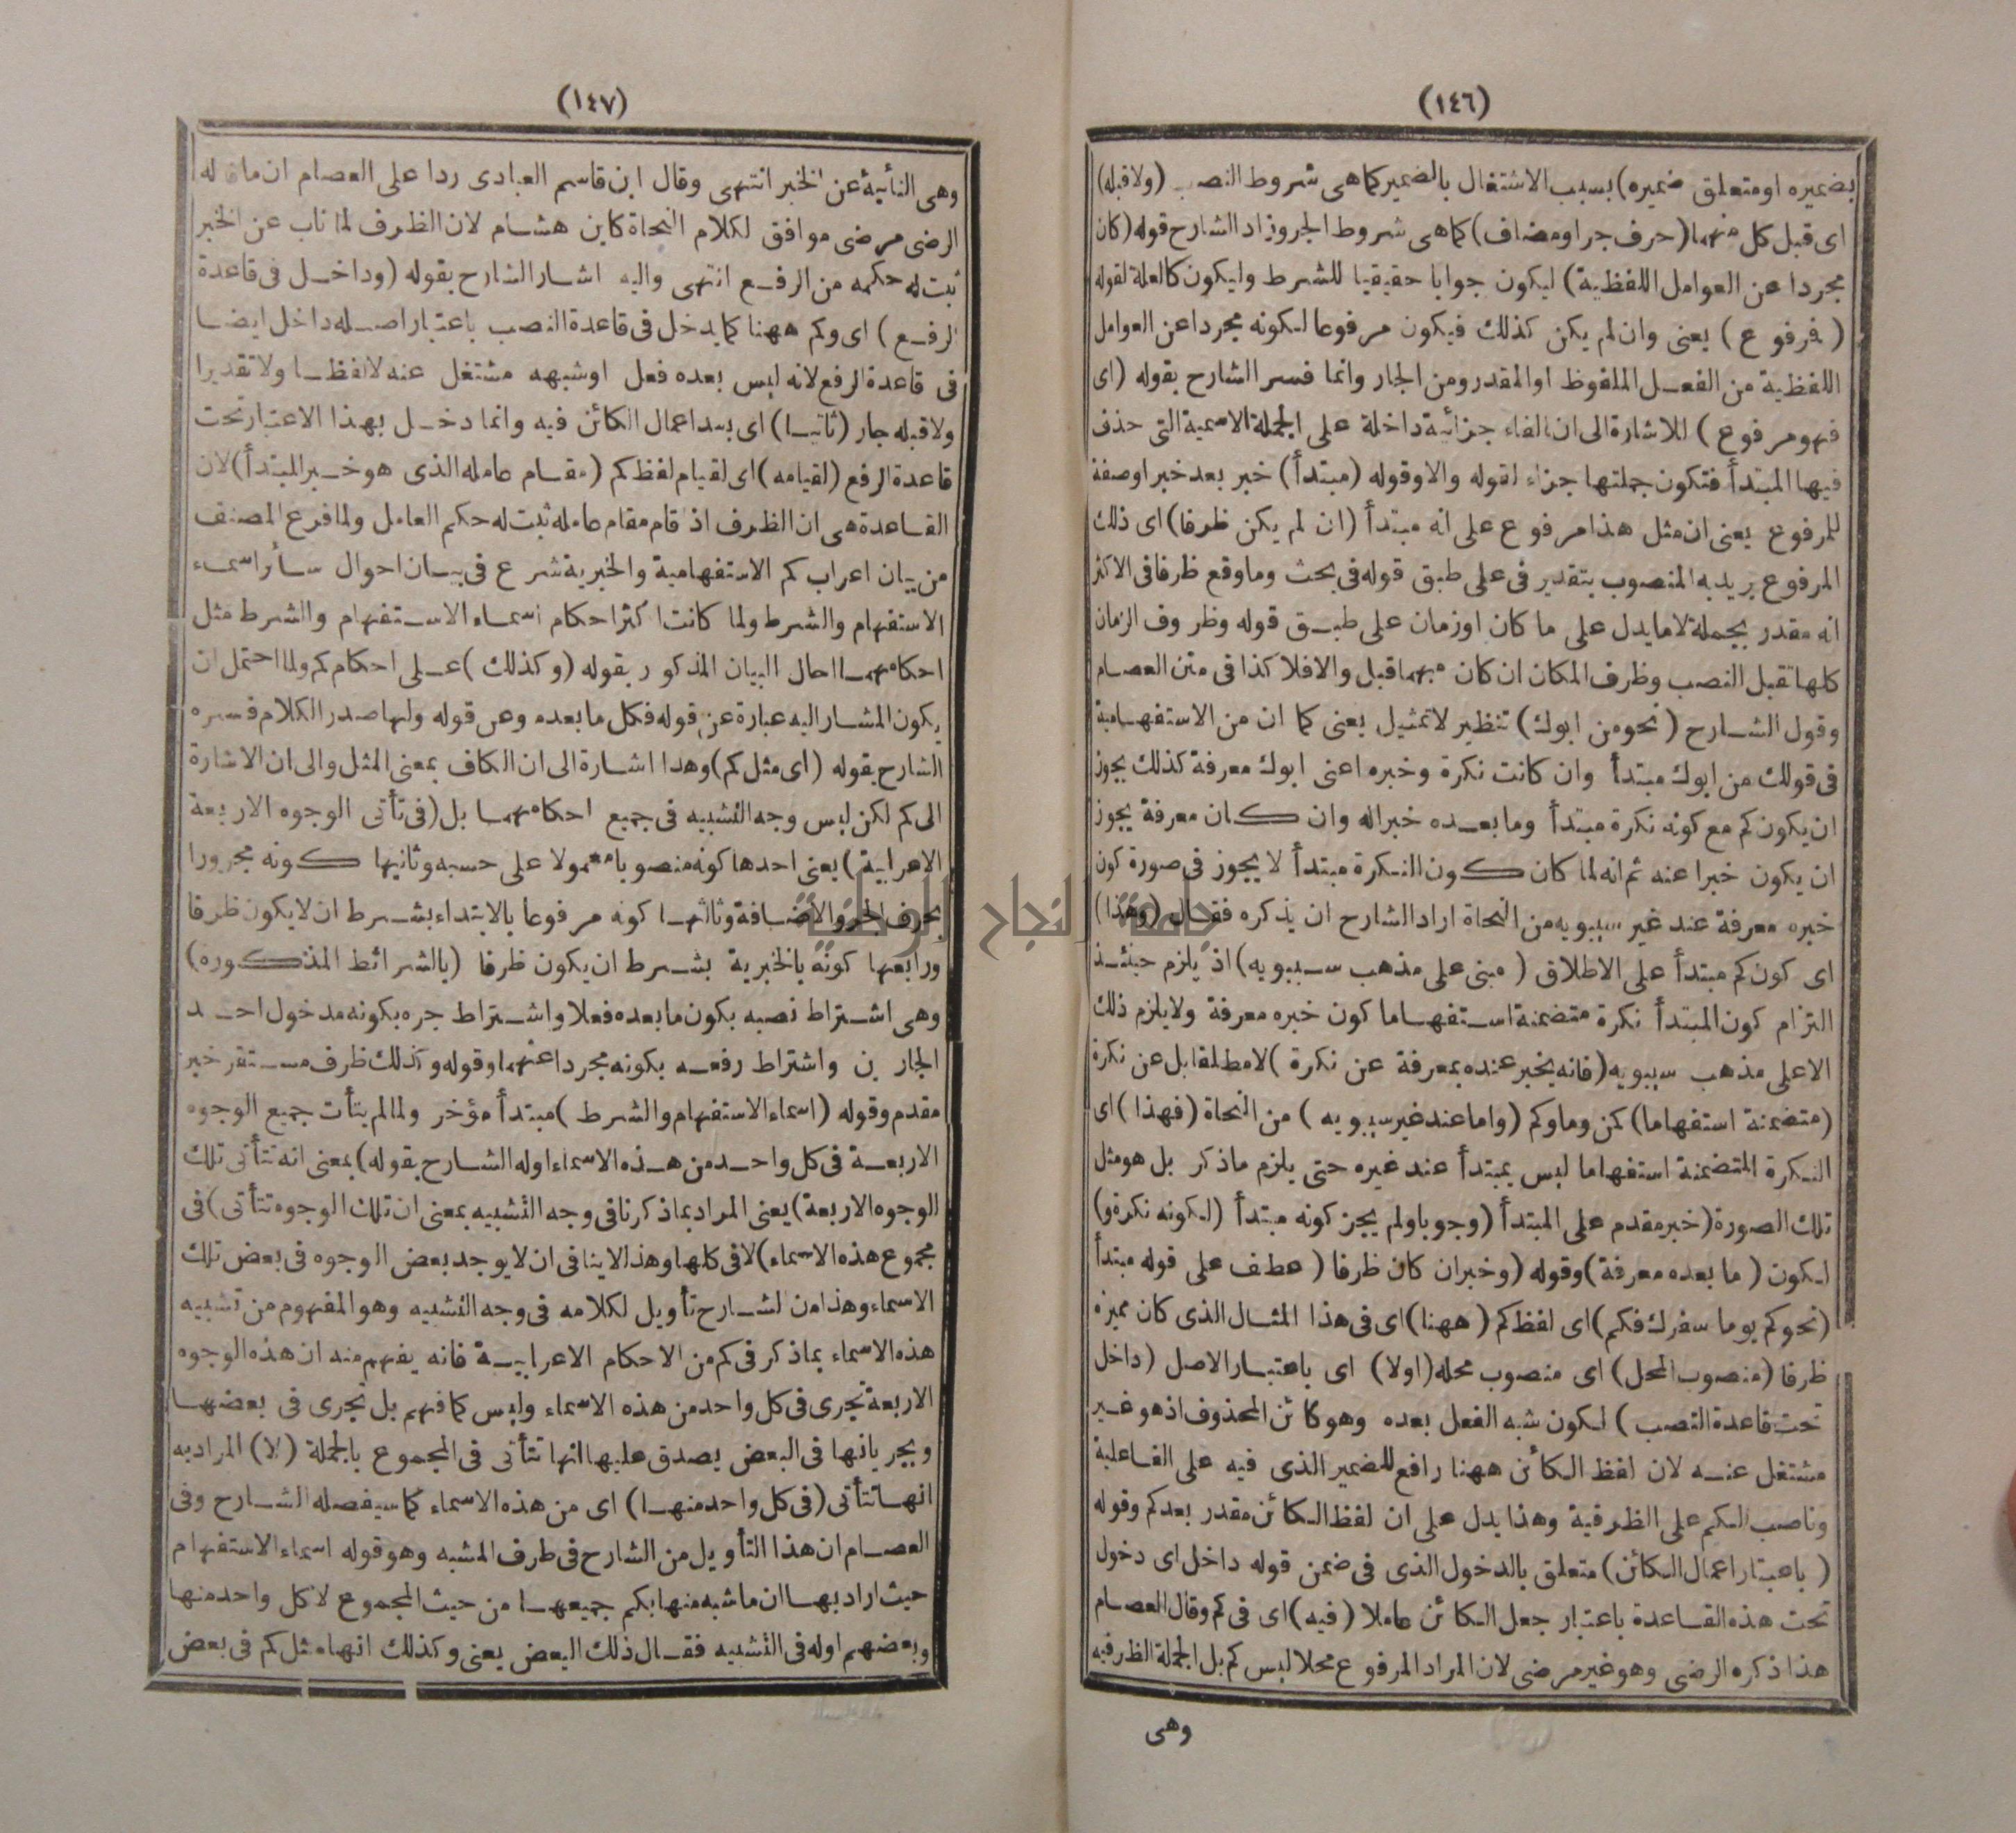 (١٤٦)
بضميره او متعلق ضميره) بسبب الاشتغال بالضمير كما هى شروط النصب (ولا قبله)
اى قبل كل منهما (حرف جر او مضاف) كما هى شروط الجر وزاد الشارح قوله (كان
مجردا عن العوامل اللفظية) ليكون جوابا حقيقيا للشرط وليكون كالعلة لقوله
(فرفوع) يعنى وان لم يكن كذلك فيكون مرفوعا لكونه مجردا عن العوامل
اللفظية من الفعل الملفوظ او المقدر ومن الجار وانما فسر الشارح بقوله (اى
فهو مرفوع) للاشارة الى ان الفاء جزائية داخلة على الجملة الاسمية التى حذف
فيها المبتدأ فتكون جملتها جزاء لقوله والا وقوله (مبتدأ) خبر بعد خبر او صفة
للمرفوع يعنى ان مثل هذا مرفوع على انه مبتدأ (ان لم يكن ظرفا) اى ذلك
المرفوع يريد به المنصوب بتقدير فى على طبق قوله فى بحث وما وقع ظرفا فى الاكثر
انه مقدر بجملة لا ما يدل على ما كان او زمان على طبق قوله وظروف الزمان
كلها تقبل النصب وظرف المكان ان كان مبهما قبل والا فلا كذا فى متن العصام
وقول الشارح (نحو من ابوك) تنظير لا تمثيل يعنى كما ان من الاستفهامية
فى قولك من ابوك مبتدأ وان كانت نكرة وخبره اعنى ابوك معرفة كذلك يجوز
ان يكون كم مع كونه نكرة مبتدأ وما بعده خبرا له وان كان معرفة يجوز
ان يكون خبرا عنه ثم انه لما كان كون النكرة مبتدأ لا يجوز فى صورة كون
خبره معرفة عند غير سيبويه من النحاة اراد الشارح ان يذكره فقال (وهذا)
اى كون كم مبتدأ على الاطلاق (مبنى على مذهب سيبويه) اذ يلزم حينئذ
التزام كون المبتدأ نكرة متضمنة استفهاما كون خبره معرفة ولا يلزم ذلك
الا على مذهب سيبويه (فانه يخبر عنده بمعرفة عن نكرة) لا مطلقا بل عن نكرة
(متضمنة استفهاما) كمن وما وكم (واما عند غير سيبويه) من النحاة (فهذا) اى
النكرة المتضمنة استفهاما ليس بمبتدأ عند غيره حتى يلزم ما ذكر بل هو مثل
تلك الصورة (خبر مقدم على المبتدأ) وجوبا ولم يجز كونه مبتدأ (لكونه نكرة و)
لكون (ما بعده معرفة) وقوله (وخبر ان كان ظرفا) عطف على قوله مبتدأ
(نحو كم يوما سفرك فكم) اى لفظ كم (ههنا) اى فى هذا المثال الذى كان مميزه
ظرفا (منصوب المحل) اى منصوب محله (اولا) اى باعتبار الاصل (داخل
تحت قاعدة النصب) لكون شبه الفعل بعده وهو كائن المحذوف اذ هو غير
مشتغل عنه لان لفظ الكائن ههنا رافع للضمير الذى فيه على الفاعلية
وناصب لكم على الظرفية وهذا يدل على ان لفظ الكائن مقدر بعد كم وقوله
(باعتبار اعمال الكائن) متعلق بالدخول الذى فى ضمن قوله داخل اى دخول
تحت هذه القاعدة باعتبار جعل الكائن عاملا (فيه) اى فى كم وقال العصام
هذا ذكره الرضى وهو غير مرضى لان المراد المرفوع محلا ليس كم بل الجملة الظرفية
وهى
(١٤٧)
وهى النائبة عن الخبر انتهى وقال ابن قاسم العبادى ردا على العصام ان ما قاله
الرضى مرضى موافق لكلام النحاة كابن هشام لان الظرف لما ناب عن الخبر
ثبت له حكمه من الرفع انتهى واليه اشار الشارح بقوله (وداخل فى قاعدة
الرفع) اى وكم ههنا كما يدخل فى قاعدة النصب باعتبار اصله داخل ايضا
فى قاعدة الرفع لانه ليس بعده فعل او شبهه مشتغل عنه لا لفظا ولا تقديرا
ولا قبله جار (ثانيا) اى بعد اعمال الكائن فيه وانما دخل بهذا الاعتبار تحت
قاعدة الرفع (لقيامه) اى لقيام لفظ كم (مقام عامله الذى هو خبر المبتدأ) لان
القاعدة هى ان الظرف اذ قام مقام عامله ثبت له حكم العامل ولما فرع المصنف
من بيان اعراب كم الاستفهامية والخبرية شرع فى بيان احوال سائر اسماء
الاستفهام والشرط ولما كانت اكثر احكام اسماء الاستفهام والشرط مثل
احكامهما احال البيان المذكور بقوله (وكذلك) على احكام كم ولما احتمل ان
يكون المشار اليه عبارة عن قوله فكل ما بعده وعن قوله ولها صدر الكلام فسره
الشارح بقوله (اى مثل كم) وهذا اشارة الى ان الكاف بمعنى المثل والى ان الاشارة
الى كم لكن ليس وجه التشبيه فى جميع احكامهما بل (فى تأتى الوجوه الاربعة
الاعرابية) يعنى احدها كونه منصوبا معمولا على حسبه وثانيها كونه مجرورا
بحرف الجر والاضافة وثالثها كونه مرفوعا بالابتداء بشرط ان لا يكون ظرفا
ورابعها كونه بالخبرية بشرط ان يكون ظرفا (بالشرائط المذكورة)
وهى اشتراط نصبه بكون ما بعده فعلا واشتراط جره بكونه مدخول احد
الجارين واشتراط رفعه بكونه مجردا عنهما وقوله وكذلك ظرف مستقر خبر
مقدم وقوله (اسماء الاستفهام والشرط) مبتدأ مؤخر ولما لم يتأت جميع الوجوه
الاربعة فى كل واحد من هذه الاسماء اوله الشارح بقوله) بمعنى انه تتأتى تلك
الوجوه الاربعة) يعنى المراد بما ذكرنا فى وجه التشبيه بمعنى ان تلك الوجوه تتأتى) فى
مجموع هذه الاسماء) لا فى كلها وهذا لا ينافى ان لا يوجد بعض الوجوه فى بعض تلك
الاسماء وهذا من الشارح تأويل لكلامه فى وجه التشبيه وهو المفهوم من تشبيه
هذه الاسماء بما ذكر فى كم من الاحكام الاعرابية فانه يفهم منه ان هذه الوجوه
الاربعة تجرى فى كل واحد من هذه الاسماء وليس كما فهم بل تجرى فى بعضها
وبجريانها فى البعض يصدق عليها انها تتأتى فى المجموع بالجملة (لا) المراد به
انها تتأتى (فى كل واحد منها) اى من هذه الاسماء كما سيفصله الشارح وفى
العصام ان هذا التأويل من الشارح فى طرف المشبه وهو قوله اسماء الاستفهام
حيث اراد بها ان ما شبه منها بكم جميعها من حيث المجموع لا كل واحد منها
وبعضهم اوله فى التشبيه فقال ذلك البعض يعنى وكذلك انها مثل كم فى بعض
جامعة النجاح الوطنية